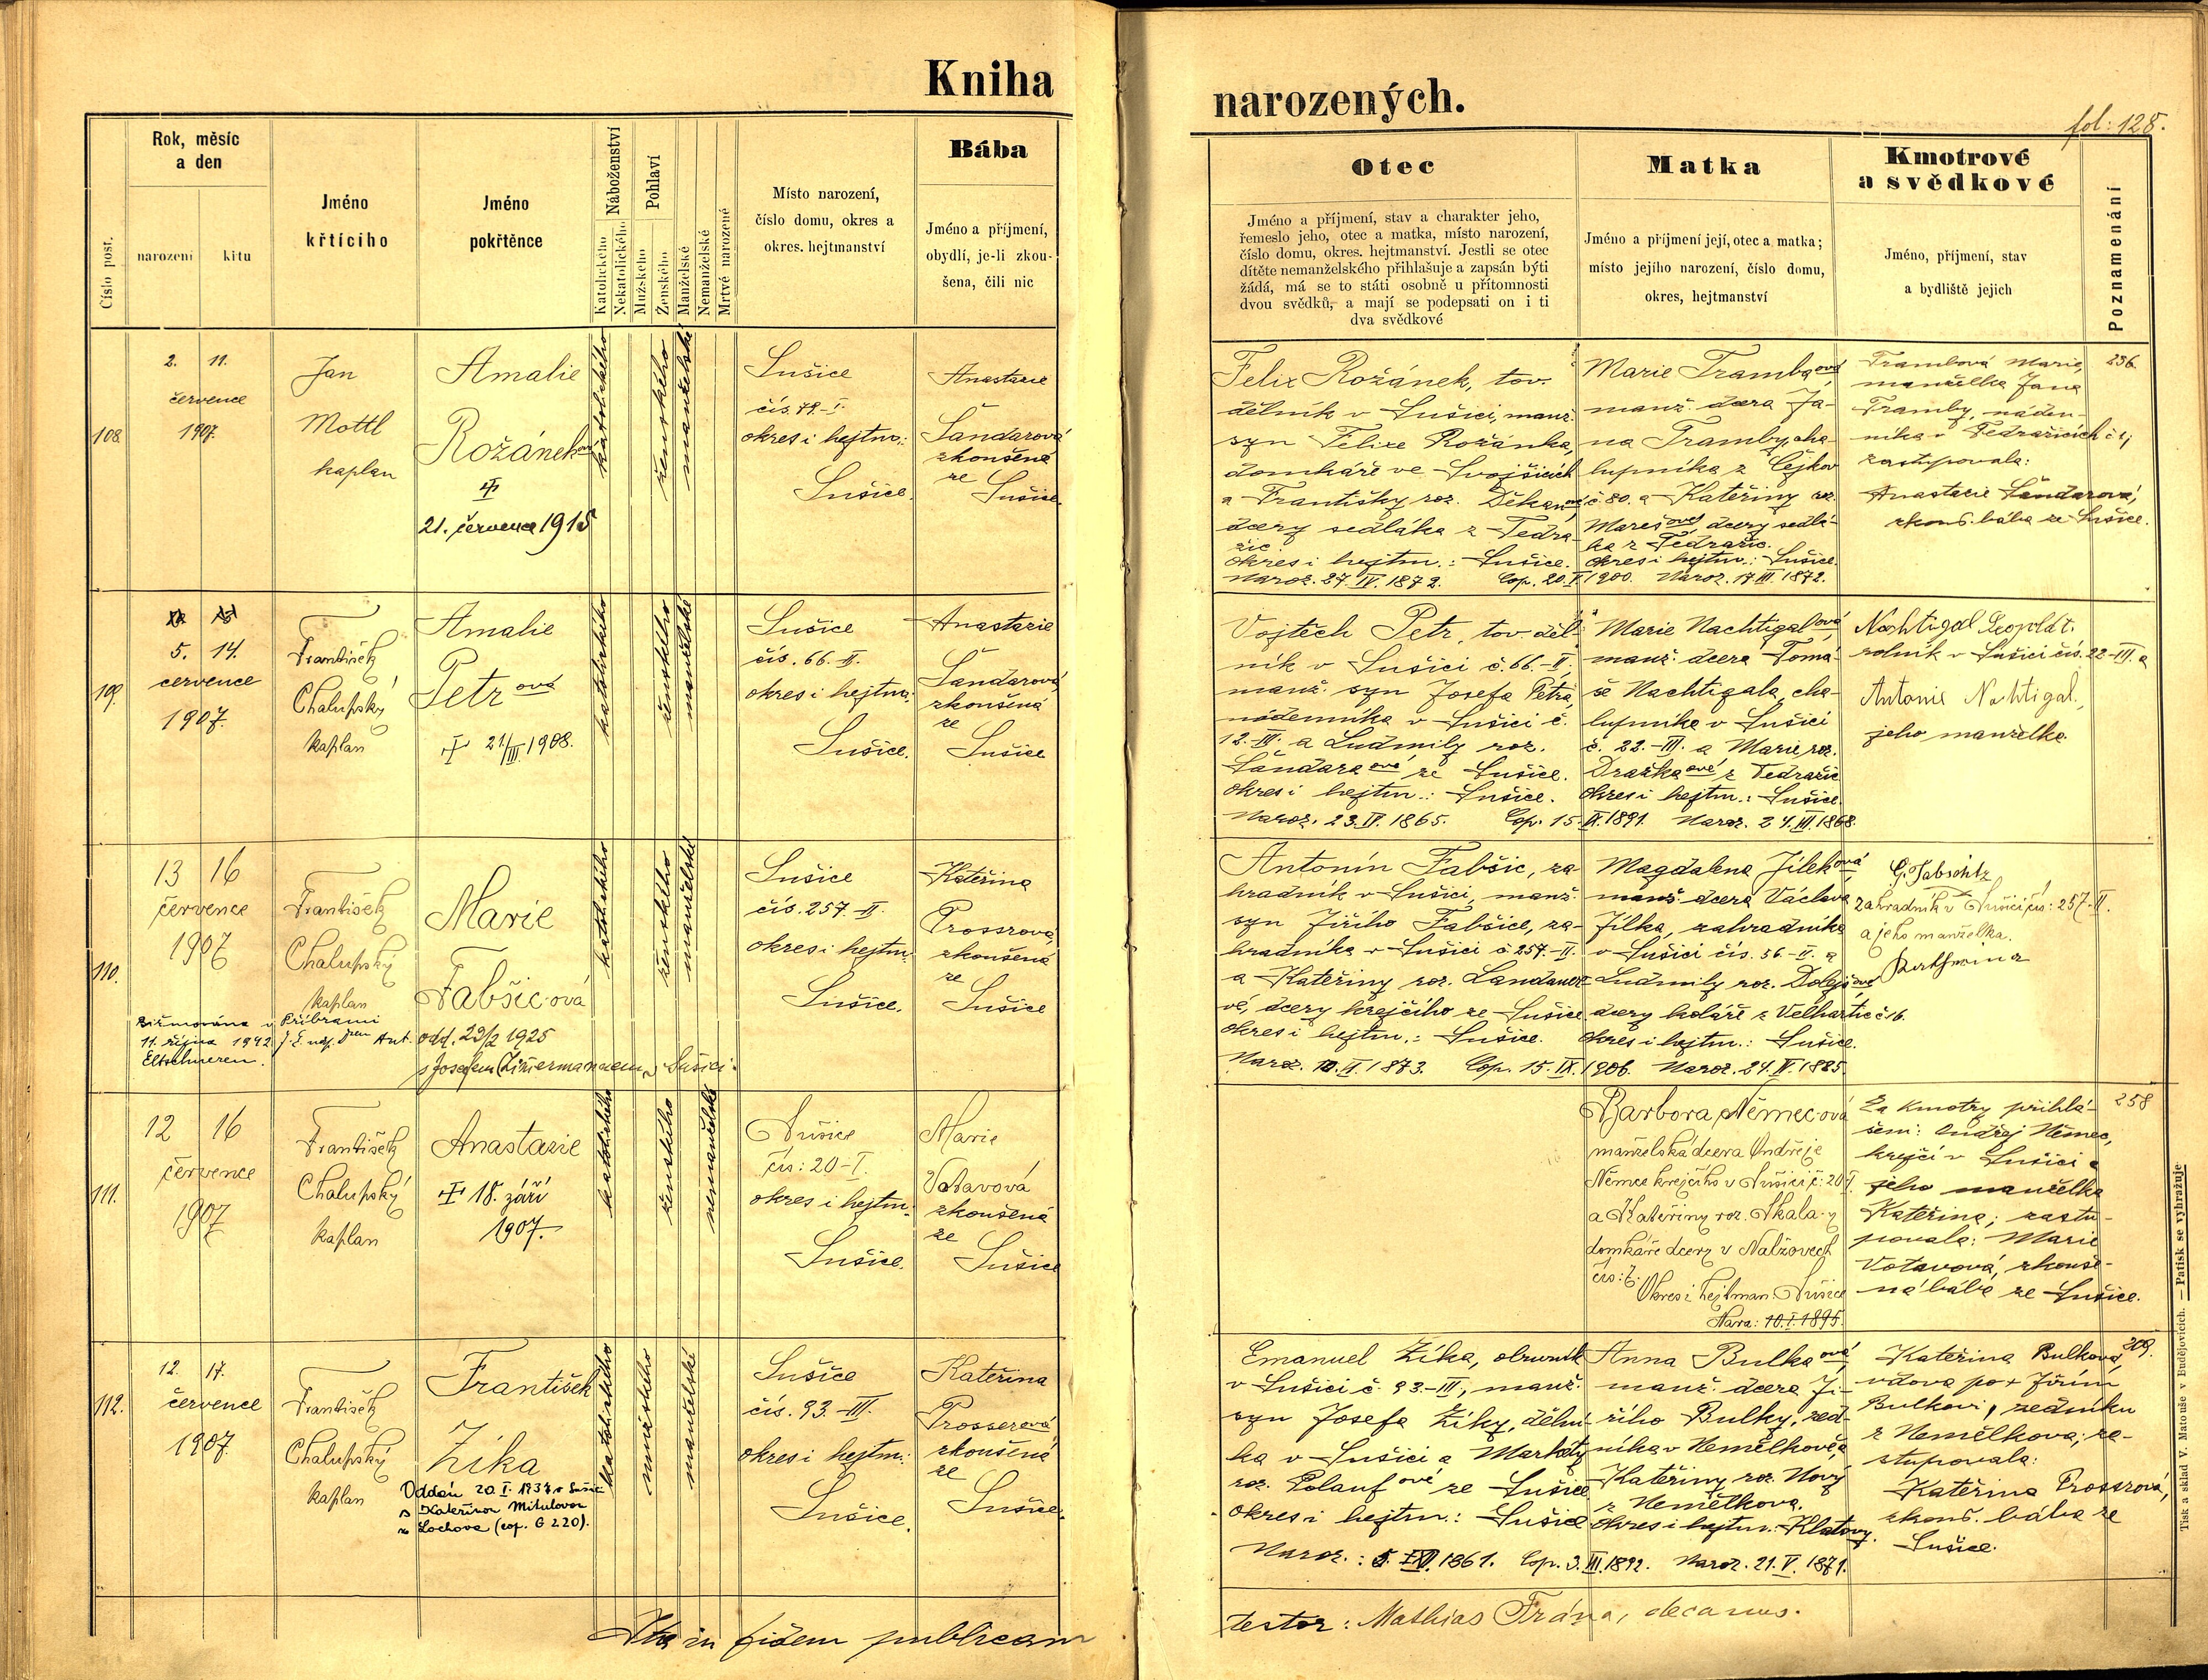 Kniha
narozených.
fol: 128.
Číslo post.
Rok, měsíc
a den
narození
kitu
Jméno
křtícího
Jméno
pokřtěnce
Náboženství
Katolického
Nekatolického
Pohlaví
Mužského
Ženského
Manželské
Nemanželské
Mrtvě narozené
Místo narození,
číslo domu, okres a
okres. hejtmanství
Bába
Jméno a příjmení,
obydlí, je-li zkou-
šena, čili nic
Otec
Jméno a příjmení, stav a charakter jeho,
řemeslo jeho, otec a matka, místo narození,
číslo domu, okres. hejtmanství. Jestli se otec
dítěte nemanželského přihlašuje a zapsán býti
žádá, má se to státi osobně u přítomnosti
dvou svědků, a mají se podepsati on i ti
dva svědkové
Matka
Jméno a příjmení její, otec a matka;
místo jejího narození, číslo domu,
okres, hejtmanství
Kmotrové
a svědkové
Jméno, příjmení, stav
a bydliště jejich
Poznamenání
108.
2. 11.
července
1907.
Jan
Mottl
kaplan
Amalie
Rožánek ová
21. července 1915
katolického
ženského
manželské
Sušice
čís. 79.-I.
okres i hejtm.:
Sušice.
Anastazie
Šandarová
zkoušená
ze
Sušice.
Felix Rožánek, tov.
dělník v Sušici, manž.
syn Felixe Rožánka,
domkáře ve Svojšicích
a Františky roz. Děkanové
dcery sedláka z Tedra-
žic.
okres i hejtm.: Sušice.
Naroz. 27. IV. 1872. Cop. 20. I. 1900.
Marie Tramba ová
manž. dcera Ja-
na Tramby, cha-
lupníka z Čejkov
č. 80. a Kateřiny roz.
Mareš ové, dcery sedlá-
ka z Tedražic.
okres i hejtm.: Sušice.
Naroz. 17. III. 1872.
Trambová Marie,
manželka Jana
Tramby, náden-
níka v Tedražicích č 1;
zastupovala:
Anastazie Šandarová,
zkouš. bába ze Sušice.
236.
109.
5. 14.
července
1907.
František
Chalupský
kaplan
Amalie
Petr ová
21/III 1908.
katolického
ženského
manželské
Sušice
čís. 66.-II.
okres i hejtm.
Sušice.
Anastazie
Šandarová,
zkoušená
ze
Sušice
Vojtěch Petr, tov. děl-
ník v Sušici č. 66.-II.
manž. syn Josefa Petra,
nádenníka v Sušici č.
12.-III. a Ludmily roz.
Šandara ové ze Sušice.
okres i hejtm.: Sušice.
Naroz. 23. IV. 1865. Cop. 15. IX. 1891.
Marie Nachtigal ová,
manž. dcera Tomá-
še Nachtigala, cha-
lupníka v Sušici
č. 22.-III. a Marie roz.
Dražka ové z Tedražic
okres i hejtm.: Sušice.
Naroz. 24. III. 1868.
Nachtigal Leopold t.
rolník v Sušici čís. 22-III. a
Antonie Nachtigal.,
jeho manželka.
110.
13 16
července
1907
František
Chalupský
kaplan
Biřmována v Příbrami
11. října 1942
Marie
Fabšic-ová
odd. 23/2 1925
s Josefem Zimermannem v Sušici.
katolického
ženského
manželské
Sušice
čís. 257.-II.
okres i hejtm.
Sušice.
Kateřina
Prossrová,
zkoušená
ze
Sušice
Antonín Fabšic, za-
hradník v Sušici, manž.
syn Jiřího Fabšice, za-
hradníka v Sušici č 257.-II.
a Kateřiny roz. Landauro-
vé, dcery krejčího ze Sušice
okres i hejtm.: Sušice.
Naroz. 10. II. 1873. Cop. 15. IX. 1906.
Magdalena Jílek ová
manž. dcera Václava
Jílka, zahradníka
v Sušici čís. 56.-II. a
Ludmily roz. Dolejš ové
dcery koláře z Velhartic č 16.
okres i hejtm.: Sušice.
Naroz. 24. IV. 1885.
G. Fabschitz
zahradník v Sušici čís: 257.-II.
a jeho manželka.
Katharina
111.
12 16
července
1907
František
Chalupský
kaplan
Anastazie
18. září
1907.
katolického
ženského
nemanželské
Sušice
čís: 20-I.
okres i hejtm.
Sušice.
Marie
Votavová
zkoušená
ze
Sušice
Barbora Němec-ová
manželská dcera Ondřeje
Němce krejčího v Sušici č: 20 I.
a Kateřiny roz. Skala-y
domkáře dcery v Nalžovech
čís: 7.
Okres i hejtman. Sušice
Naro: 10. I. 1895.
Za kmotry přihlá-
šeni: Ondřej Němec,
krejčí v Sušici a
jeho manželka
Kateřina; zastu-
povala: Marie
Votavová, zkouše-
ná bába ze Sušice.
258
112.
12. 17.
července
1907.
František
Chalupský
kaplan
František
Zíka
Oddán 20. I. 1934 v Sušici
s Kateřinou Mikulovou
z Lochova (cop. G 220).
katolického
mužského
manželské
Sušice
čís. 93.-III.
okres i hejtm.:
Sušice.
Kateřina
Prosserová,
zkoušená
ze
Sušice.
Emanuel Zíka, obuvník
v Sušici č. 93.-III, manž.
syn Josefa Zíky, dělní-
ka v Sušici a Markéty
roz. Polauf ové ze Sušice
okres i hejtm.: Sušice
Naroz.: 5. 1861. Cop. 3. III. 1892.
Anna Bulka ová,
manž. dcera Ji-
řího Bulky, zed-
níka v Nemělkově a
Kateřiny roz. Nový
z Nemělkova.
okres i hejtm.: Klatovy.
Naroz. 21. V. 1871.
Kateřina Bulková,
vdova po + Jiřím
Bulkovi, zedníku
z Nemělkova; za-
stupovala:
Kateřina Prossrová,
zkouš. bába ze
Sušice.
309.
Ita in fidem publicam
testor: Mathias Frána, decanus.
Tisk a sklad V. Matouše v Budějovicích. — Patisk se vyhražuje